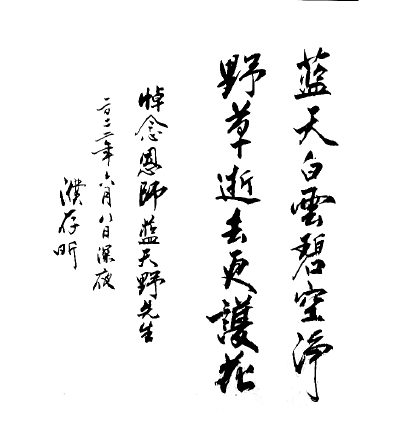 蓝天白雲碧空淨
野草逝去更護花
悼念恩師蓝天野先生
二〇二二年六月八日深夜
濮存昕